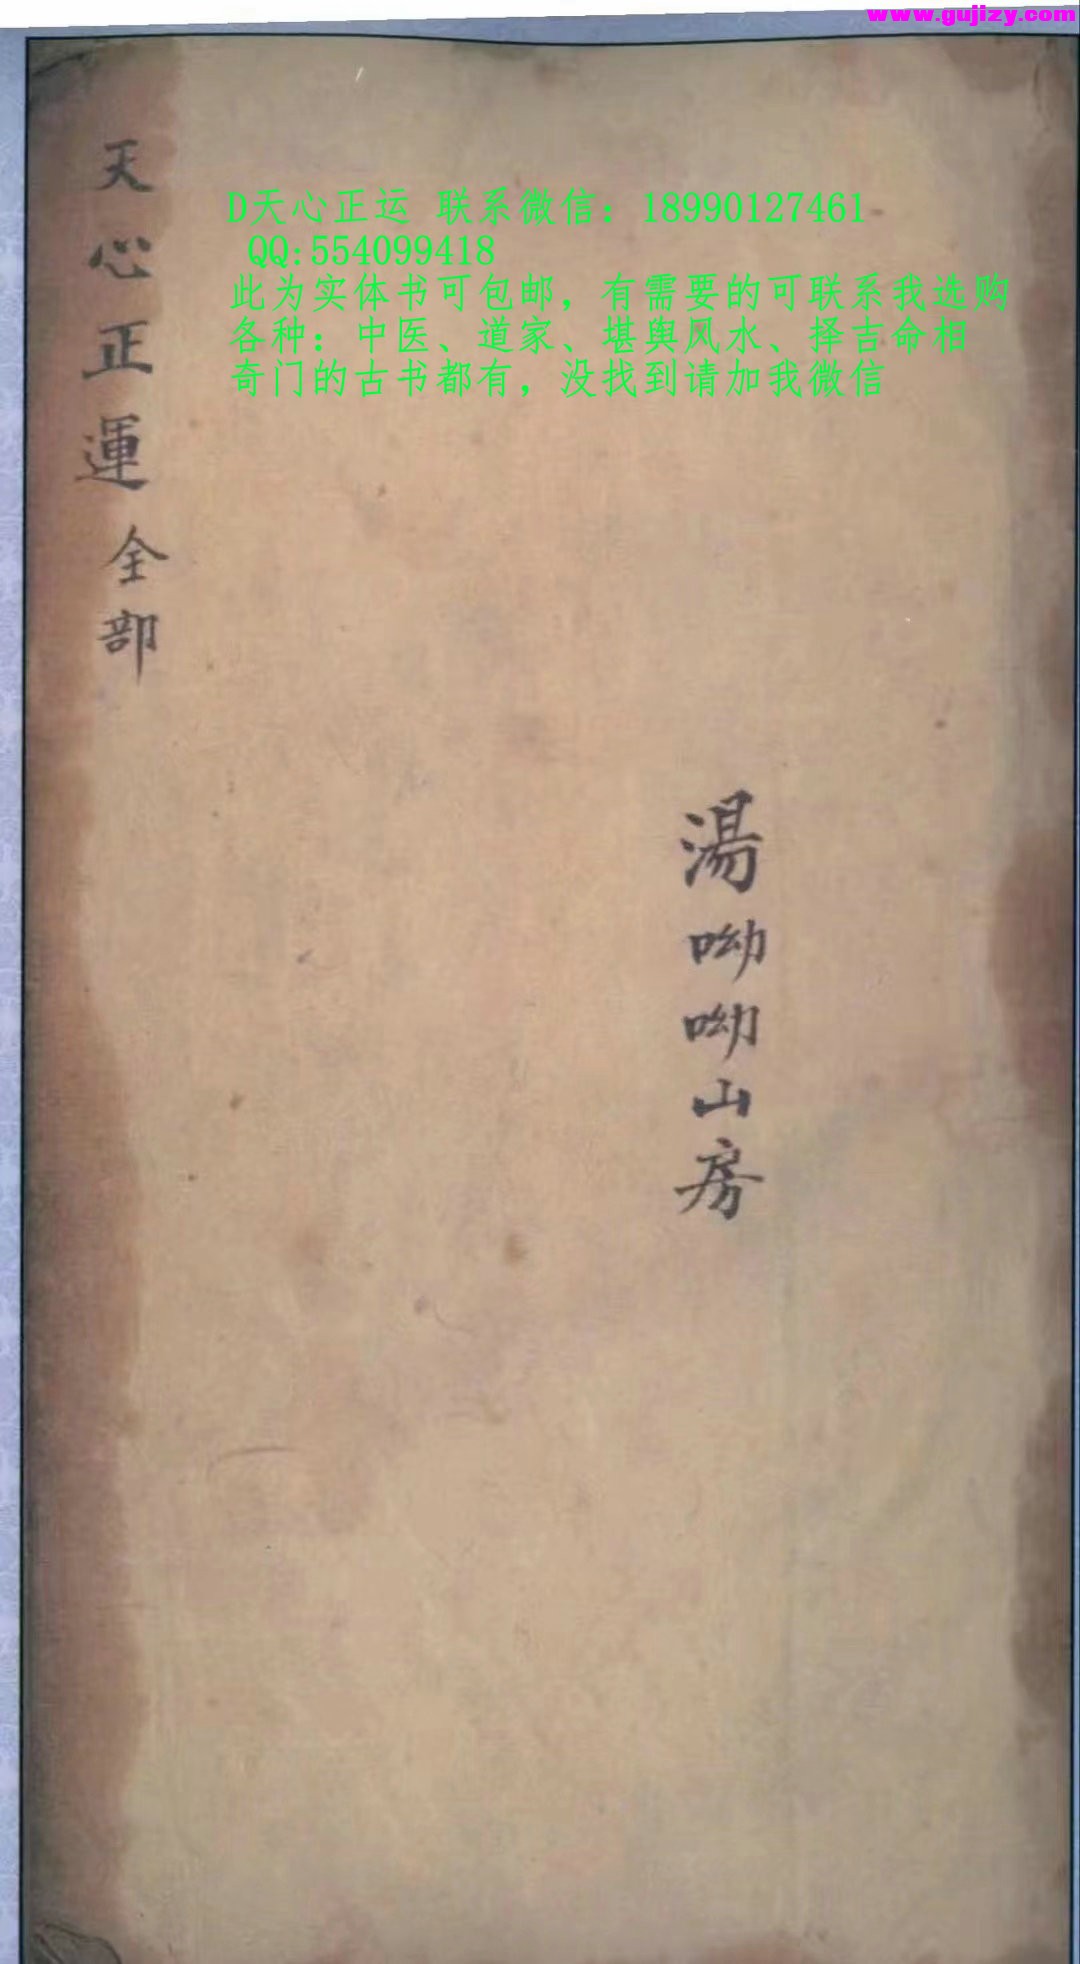 www.gujizy.com
D天心正运 联系微信：18990127461
QQ:554099418
此为实体书可包邮，有需要的可联系我选购
各种：中医、道家、堪舆风水、择吉命相
奇门的古书都有，没找到请加我微信
湯呦呦山房
天心正運全部